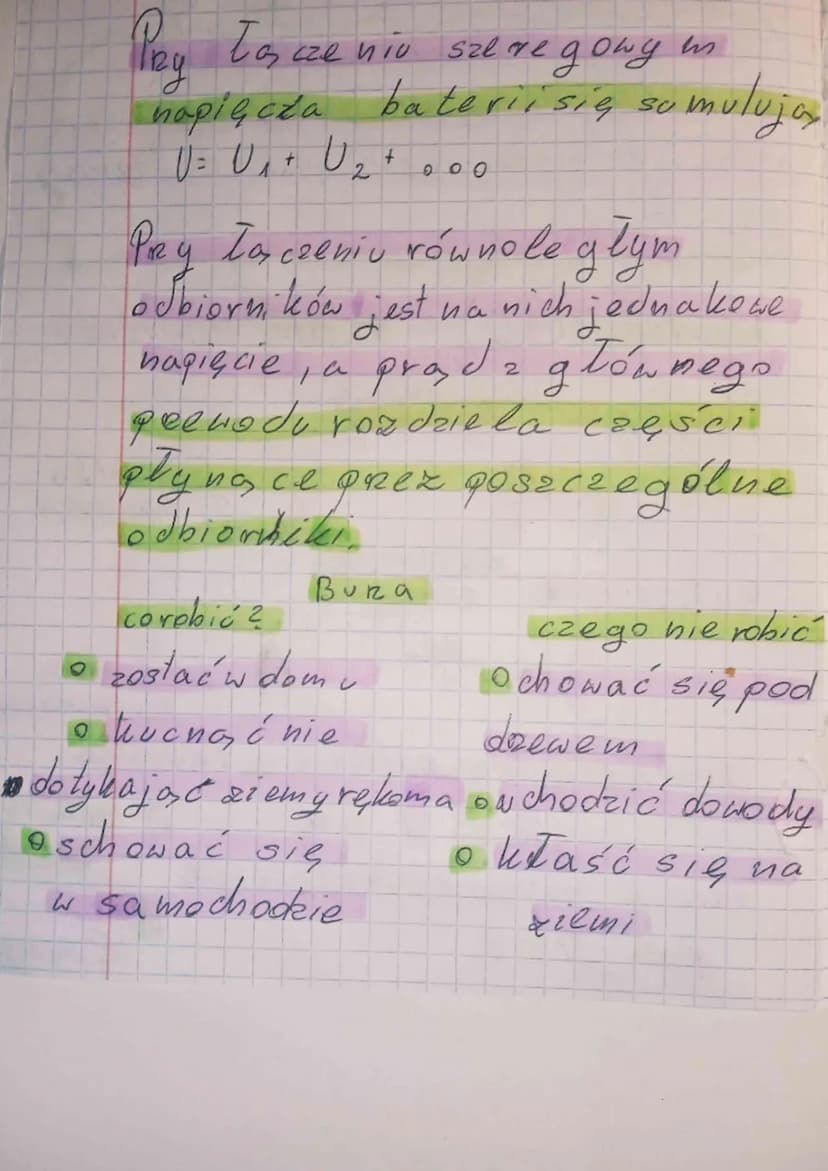 Pzy łączeniu szeregowym
napięcza baterii się sumulują
U= U1 + U2 + ...
Pzy łączeniu równoległym
odbiorników jest na nich jednakowe
napięcie, a prąd z głównego
pzewodu rozdziela części
płynące pzez poszczególne
odbiorniki.
Buza
co robić?
o zostać w domu
o kucnąć nie
dotykająć ziemy rękoma
o schować się
w samochodzie
czego nie robić
o chować się pod
dzewem
o wchodzić do wody
o kłaść się na
ziemi